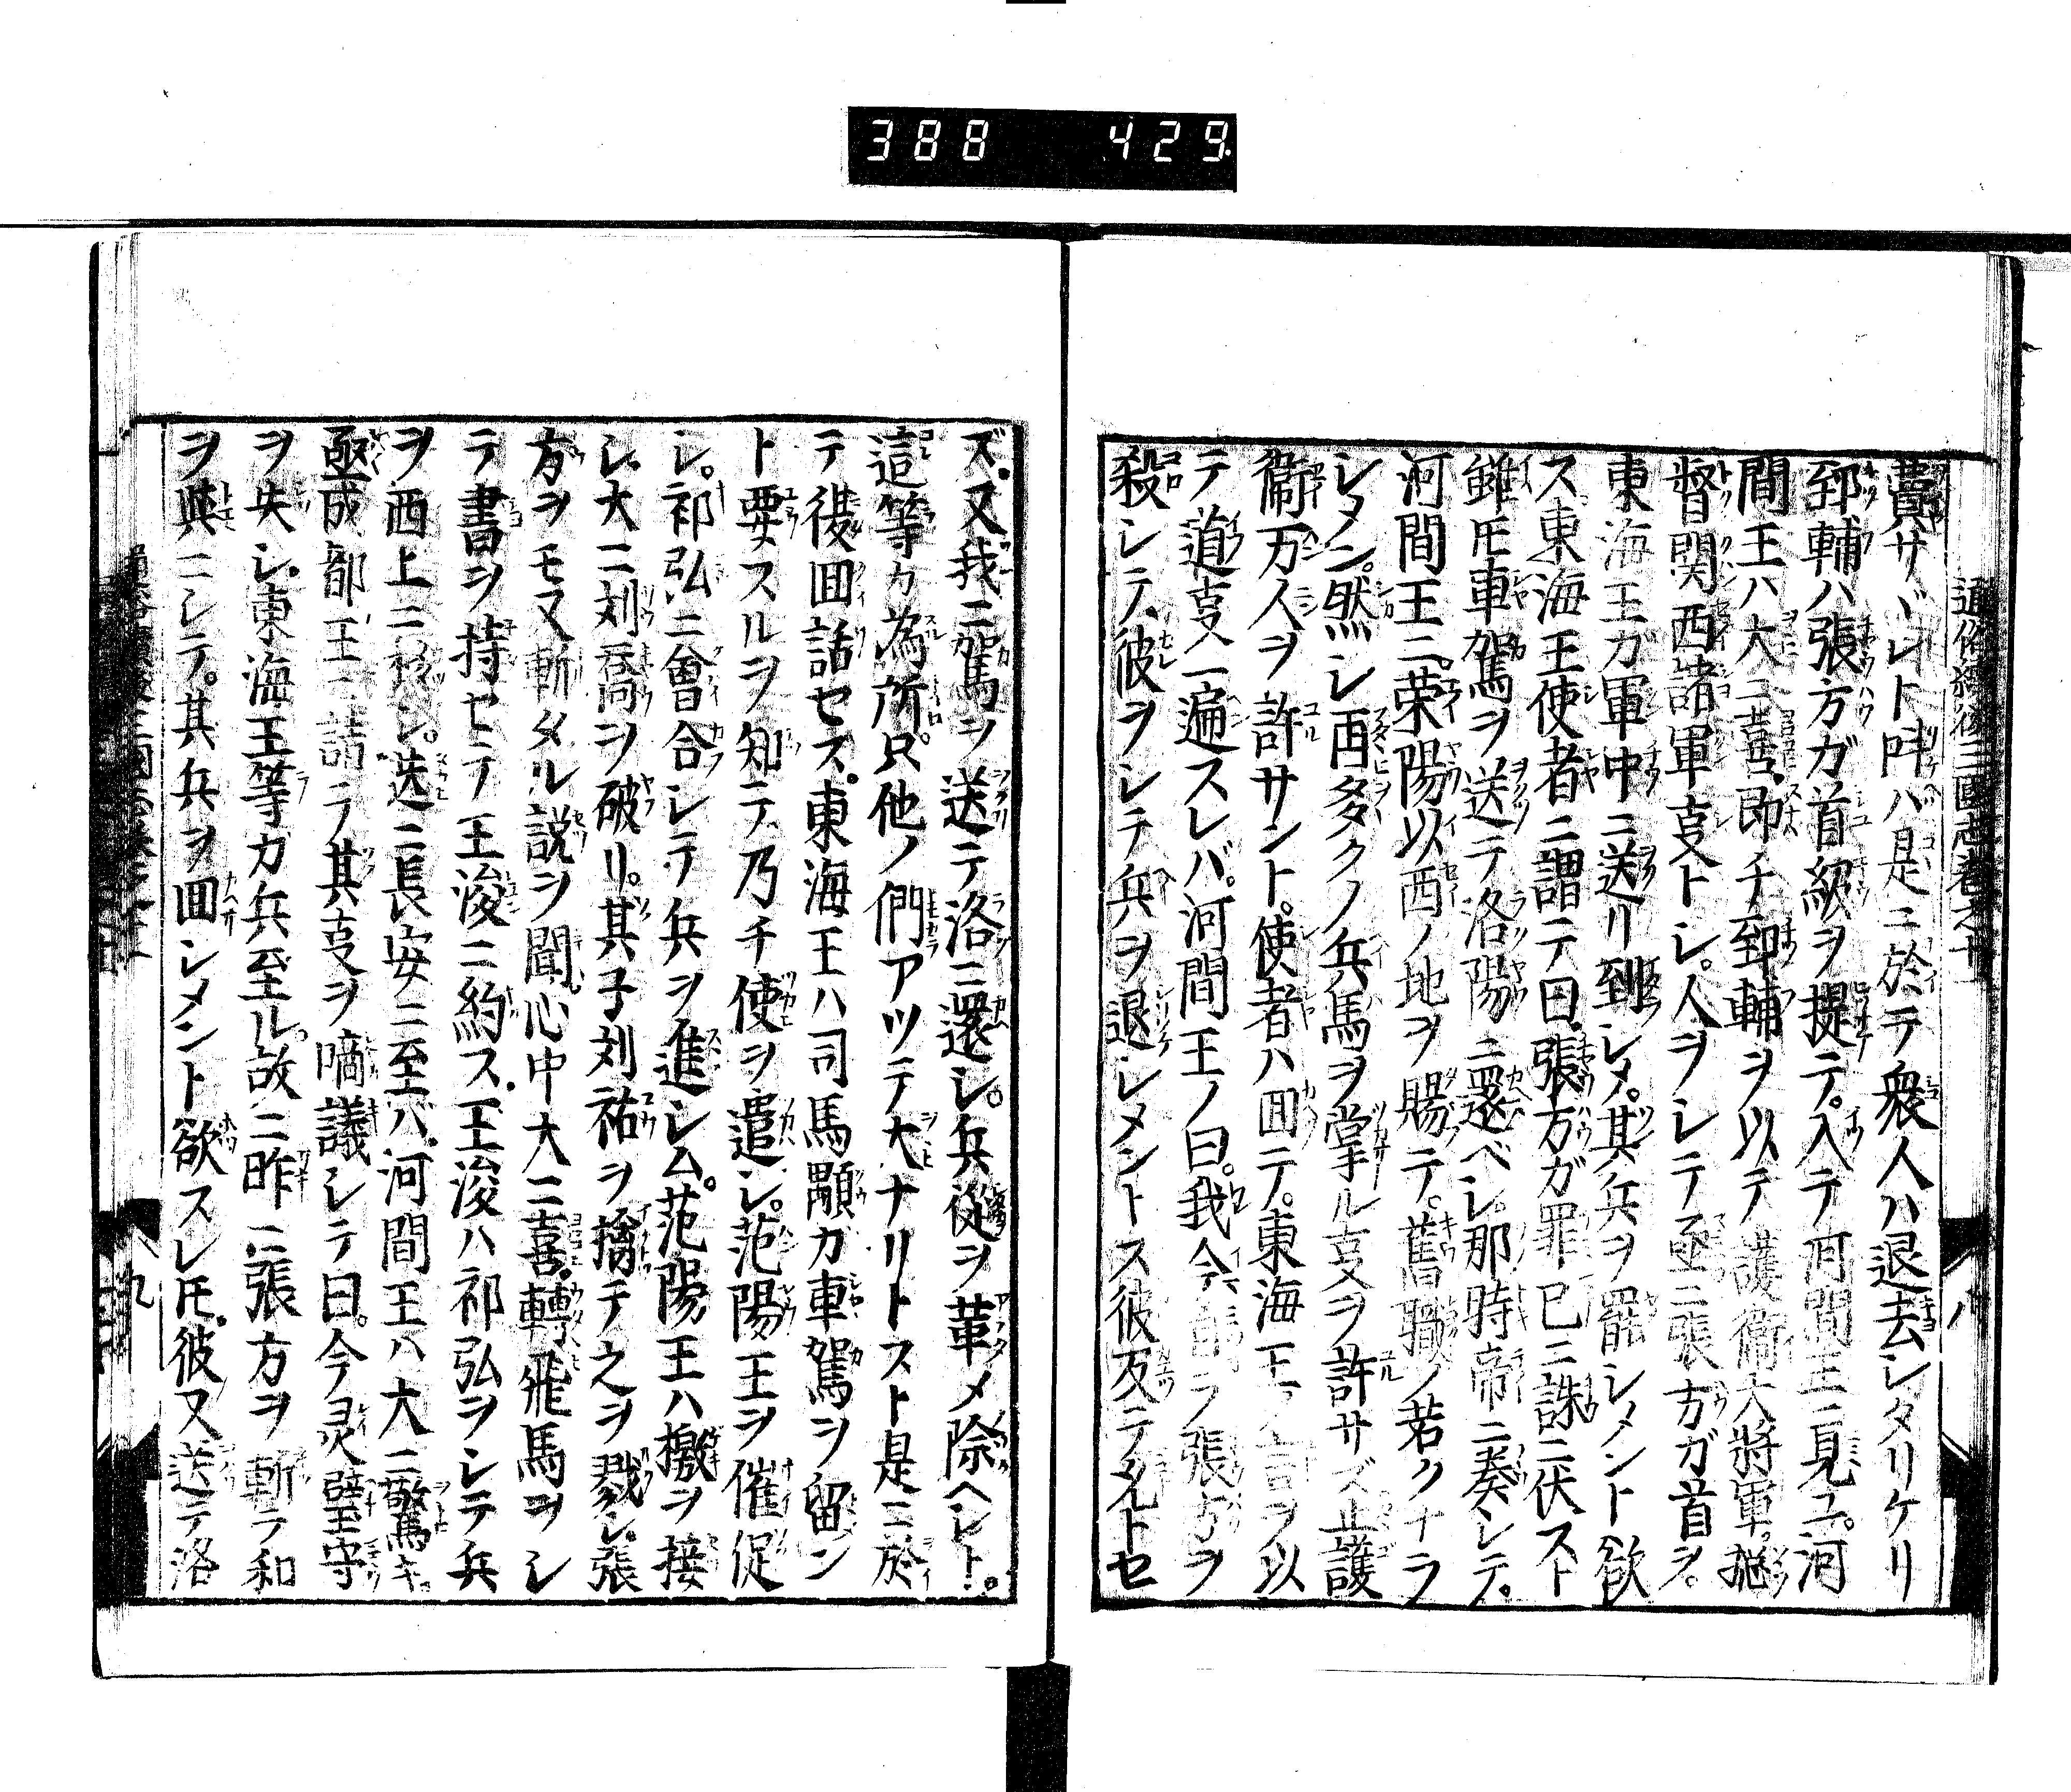 388 429
通俗續後三國志卷之十
費サヾレト呌ハ是ニ於テ衆人ハ退去シタリケリ
郅輔ハ張方ガ首級ヲ提テ。入テ河間王ニ見ユ。河
間王ハ大ニ喜。即チ郅輔ヲ以テ護衞大將軍。総
督関西諸軍㕝トシ。人ヲシテ亟ニ張方ガ首ヲ。
東海王ガ軍中ニ送リ到シメ。其兵ヲ罷シメント欲
ス東海王使者ニ謂テ曰。張方ガ罪已ニ誅ニ伏スト
雖𪜈車駕ヲ送テ洛陽ニ還ベシ那時帝ニ奏シテ。
河間王ニ。荣陽以西ノ地ヲ賜テ。舊職ノ若クナラ
シメン。然シ再多クノ兵馬ヲ掌ル㕝ヲ許サズ止護
衞万人ヲ許サント。使者ハ囬テ。東海王ノ言ヲ以
テ。道㕝一遍スレバ。河間王ノ曰。我今 張方ヲ
殺シテ。彼ヲシテ兵ヲ退シメントス彼反テ允トセ
八
ズ。又我ニ駕ヲ送テ洛ニ還シ。兵從ヲ革メ除ヘシト。
這等カ為所。只他ノ們アツテ大ナリトスト是ニ於
テ後囬話セス。東海王ハ司馬顒カ車駕ヲ留ン
ト要スルヲ知テ。乃チ使ヲ遣シ。范陽王ヲ催促
シ。祁弘ニ會合シテ兵ヲ進シム。范陽王ハ檄ヲ接
シ。大ニ刘喬ヲ破リ。其子刘祐ヲ擒テ之ヲ戮シ。張
方ヲモ又斬タル説ヲ聞。心中大ニ喜。轉飛馬ヲシ
テ書ヲ持セテ王浚ニ約ス。王浚ハ祁弘ヲシテ兵
ヲ西上ニ 。迭ニ長安ニ至バ。河間王ハ大ニ驚キ。
亟成都王ニ請テ其㕝ヲ啇議シテ曰。今灵壁守
ヲ失シ。東海王等カ兵至ル。故ニ昨ニ張方ヲ斬テ和
ヲ與ニシテ。其兵ヲ囬シメント欲スレ𪜈。彼又送テ洛
九